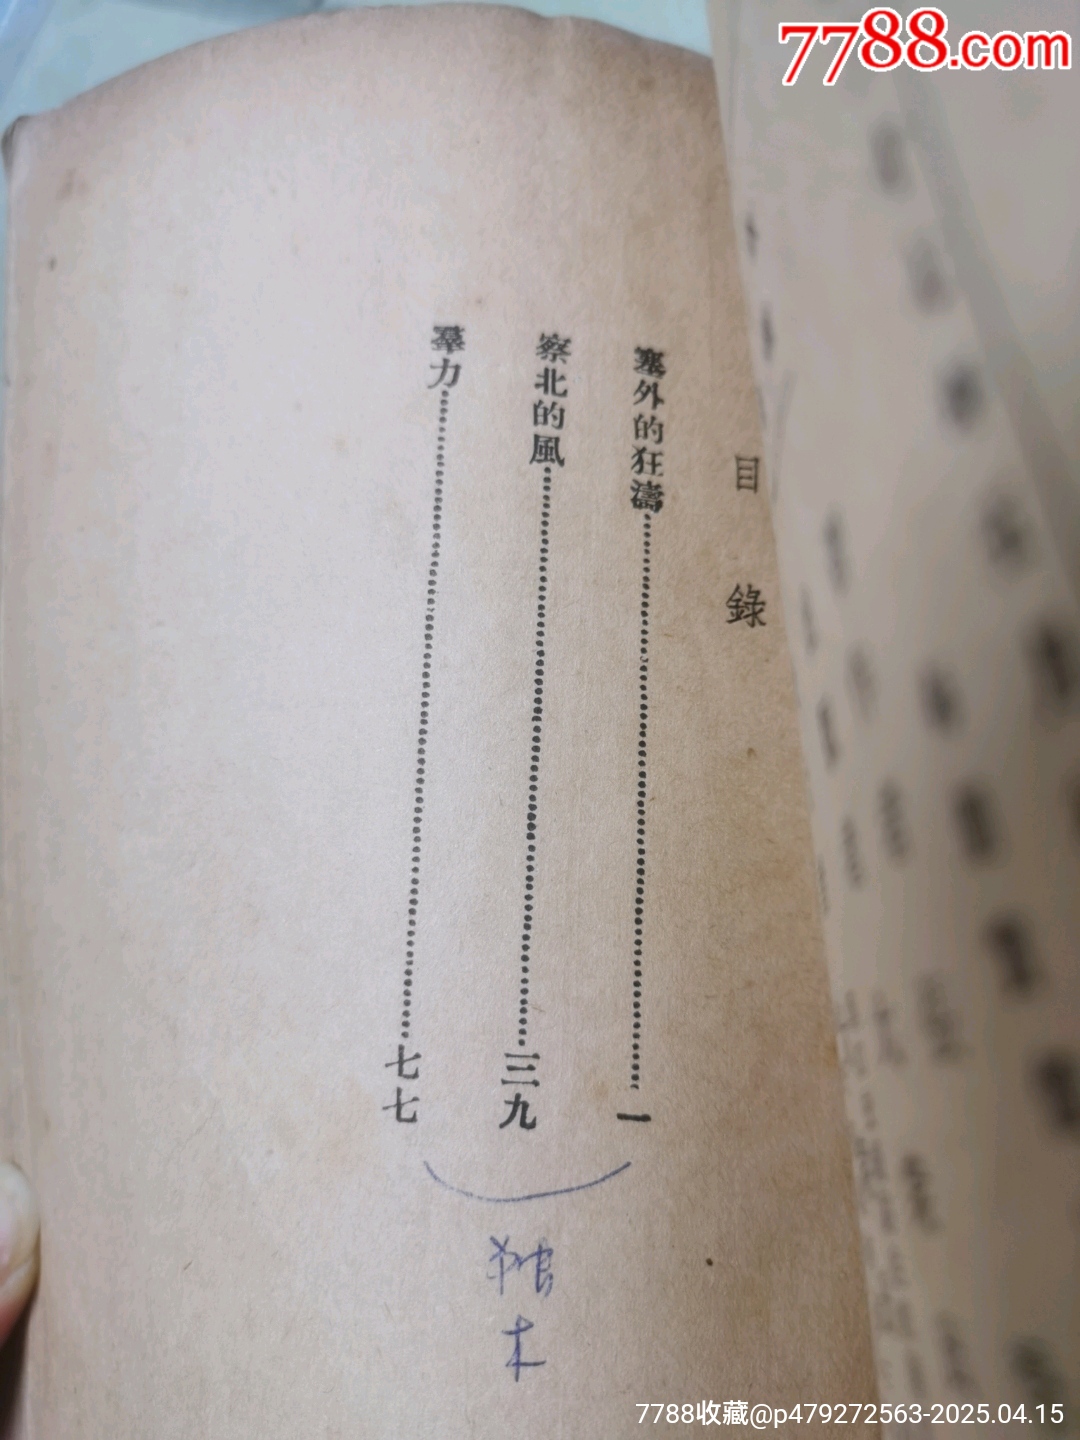 7788.com
目錄
塞外的狂濤……一
察北的風……三九
羣力……七七
独木
7788收藏@p479272563-2025.04.15